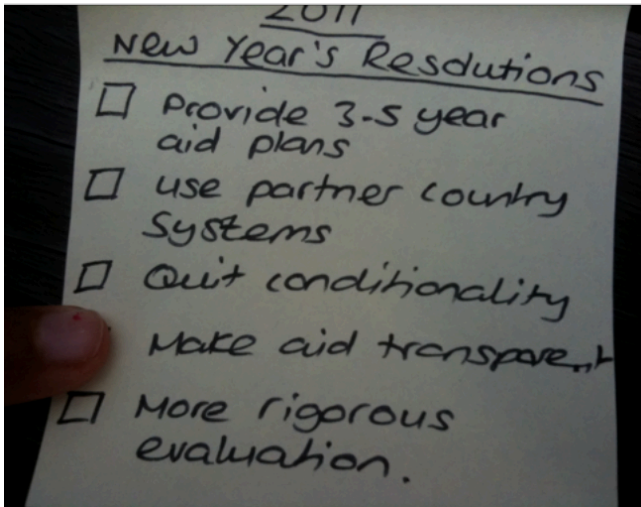 2011
New Year's Resolutions
Provide 3-5 year
aid plans
use partner country
Systems
Quit conditionality
Make aid transparent
More rigorous
evaluation.